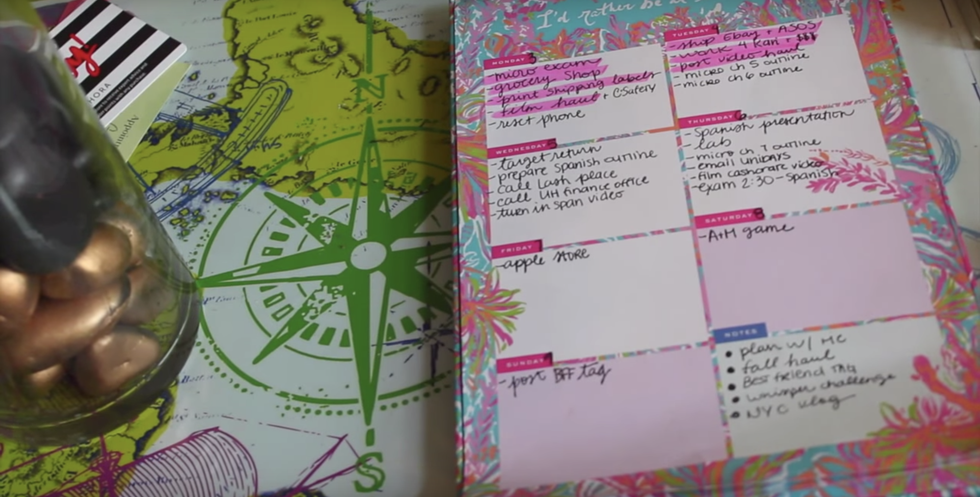 I'd rather be
MONDAY
- micro exam
- grocery shop
- print shipping labels
- film haul + CSafety
- reset phone
TUESDAY
- ship Ebay + ASOS
- work 4 Kari + $$$
- post video-haul
- micro ch 5 outline
- micro ch 6 outline
WEDNESDAY
- target return
- prepare spanish outline
- call Lash place
- call UH finance office
- turn in span video
THURSDAY
- Spanish presentation
- lab
- micro ch 7 outline
- email unidays
- film cashorare video
- exam 2:30 - Spanish
FRIDAY
- apple store
SATURDAY
- A+M game
SUNDAY
- post BFF tag
NOTES
• plan w/ MC
• fall haul
• Best friend TAG
• whisper challenge
• NYC vlog
N
S